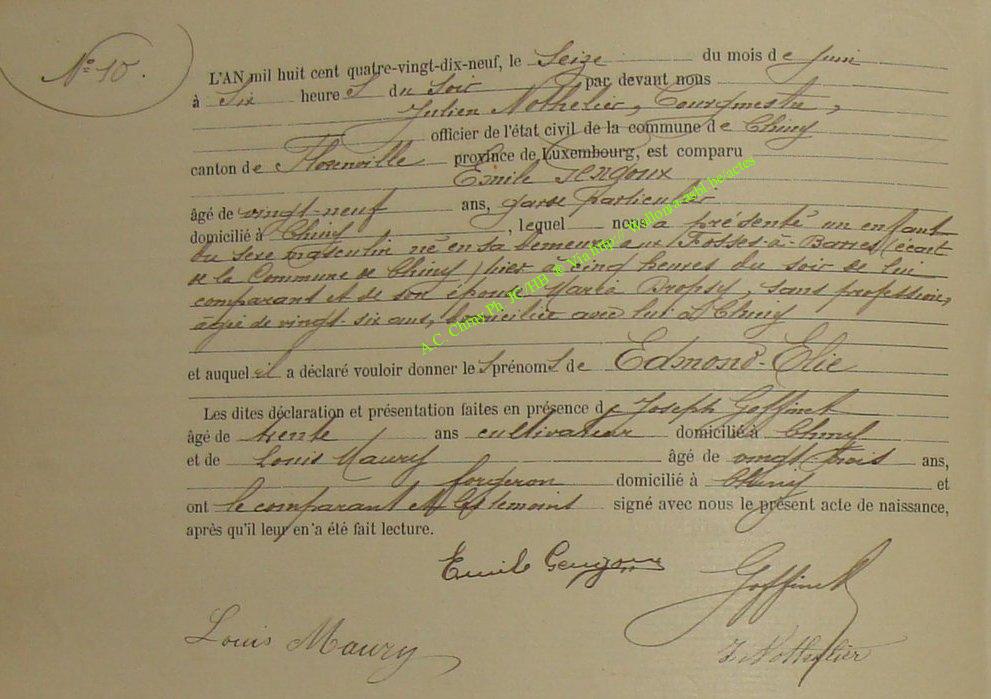 N° 10.
L'AN mil huit cent quatre-vingt-dix-neuf, le Seize du mois de Juin
à Six heures du Soir par devant nous
Julien Nothelier, Bourgmestre,
officier de l'état civil de la commune de Chiny
canton de Florenville province de Luxembourg, est comparu
Emile Gengoux
âgé de vingt-neuf ans, garde particulier
domicilié à Chiny, lequel nous a présenté un enfant
du sexe masculin né en sa demeure aux Fosses-à-Barres (écart
de la Commune de Chiny) hier à cinq heures du soir de lui
comparant et de son épouse Maria Bropsy, sans profession,
âgée de vingt-six ans, domiciliée avec lui à Chiny
et auquel il a déclaré vouloir donner les prénoms de Edmond-Elie
Les dites déclaration et présentation faites en présence de Joseph Goffinet
âgé de trente ans cultivateur domicilié à Chiny
et de Louis Maury âgé de vingt-trois ans,
forgeron domicilié à Chiny et
ont le comparant et les témoins signé avec nous le présent acte de naissance,
après qu'il leur en a été fait lecture.
Emile Gengoux
Goffinet
Louis Maury
J. Nothelier
A.C. Chiny Ph JC/HB @ Via http:// Wallonia-asbl.be/actes